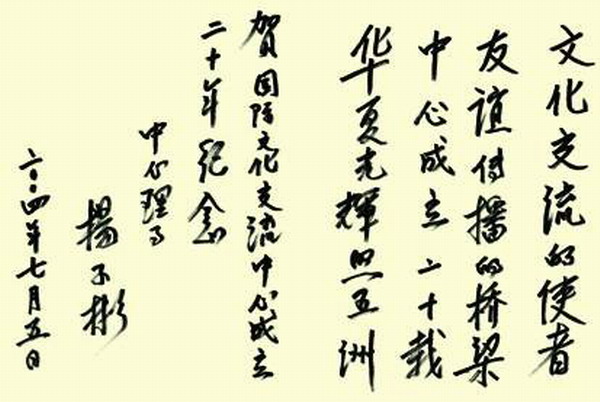 文化交流的使者
友谊传播的桥梁
中心成立二十载
华夏光辉照五洲
贺国际文化交流中心成立
二十年纪念
中心理事
杨子彬
二〇〇四年七月五日